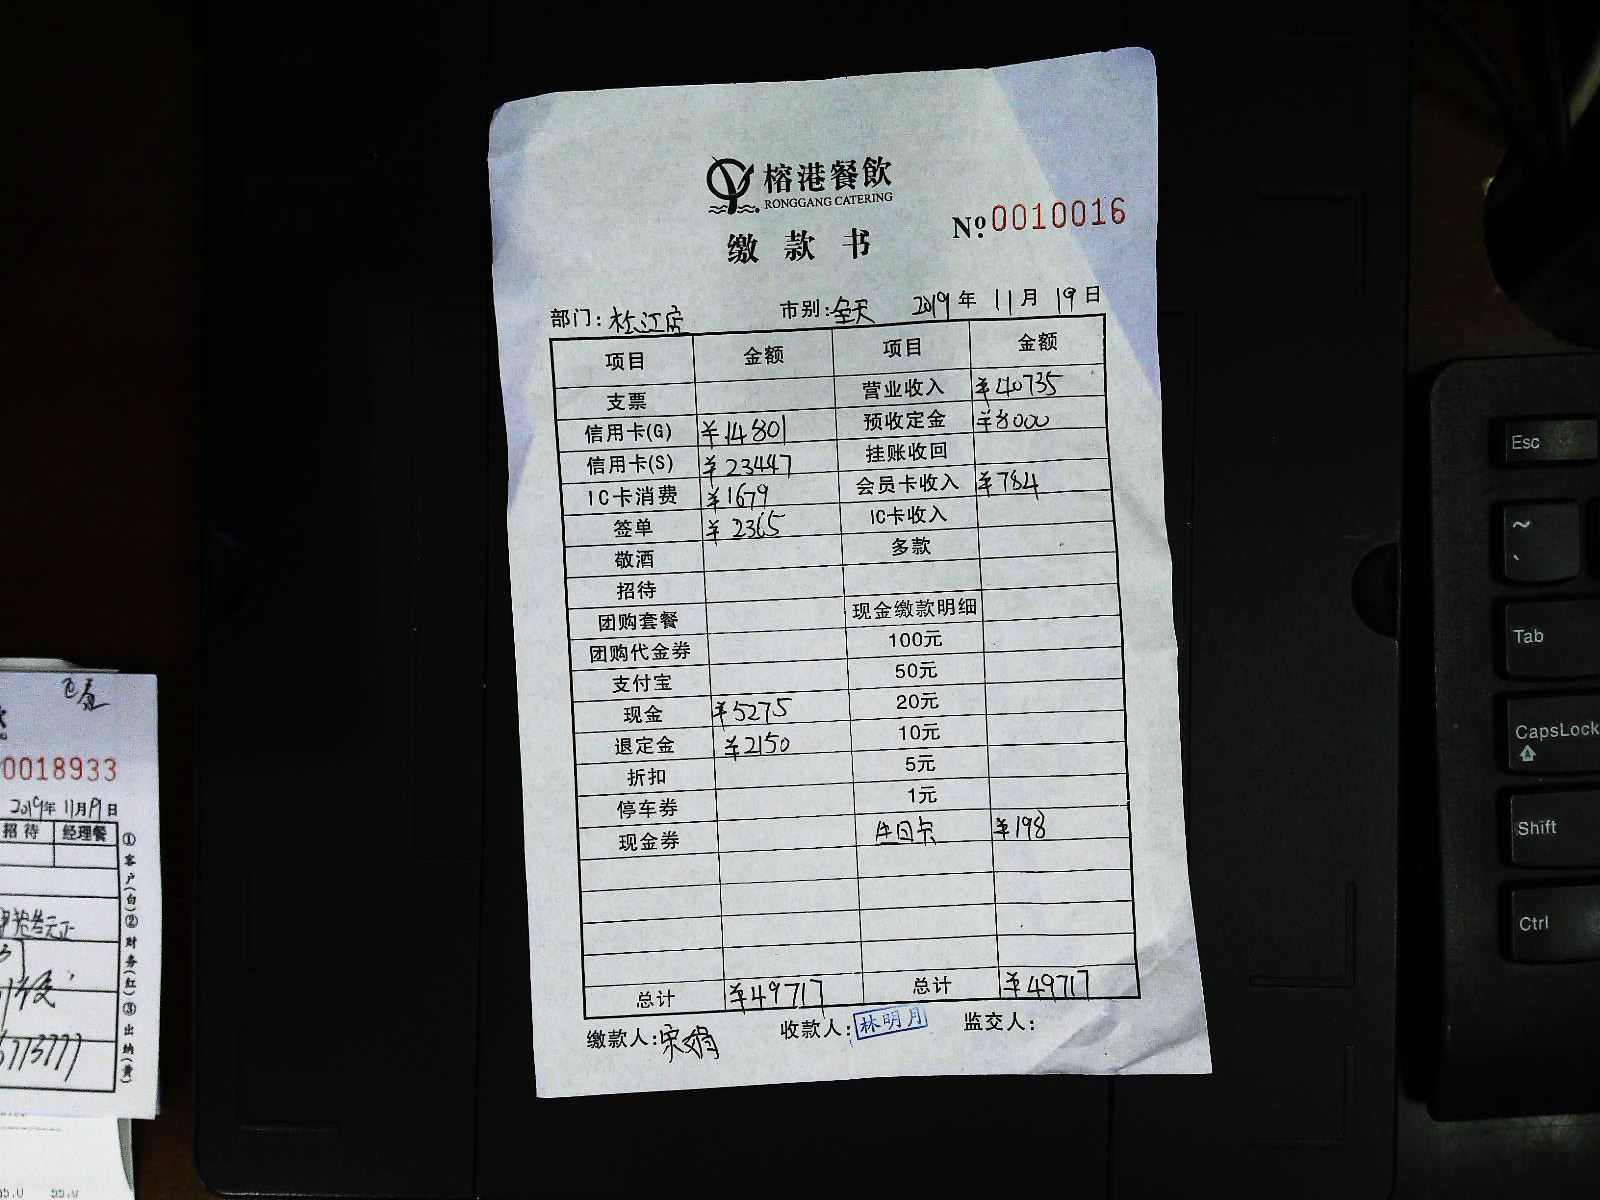 榕港餐飲
RONGGANG CATERING
缴款书
№0010016
部门:松江店 市别:全天 2019年11月19日
项目 金额 项目 金额
支票 营业收入 ¥40735
信用卡(G) ¥14801 预收定金 ¥8000
信用卡(S) ¥23447 挂账收回
IC卡消费 ¥1679 会员卡收入 ¥784
签单 ¥2365 IC卡收入
敬酒 多款
招待
团购套餐 现金缴款明细
团购代金券 100元
支付宝 50元
现金 ¥5275 20元
退定金 ¥2150 10元
折扣 5元
停车券 1元
现金券 生日卡 ¥198
总计 ¥49717 总计 ¥49717
缴款人:宋娟 收款人:林明月 监交人:
0018933
2019年11月19日
招待 经理餐
①客户(白)②财务(红)③出纳(黄)
Esc
~
Tab
CapsLock
Shift
Ctrl